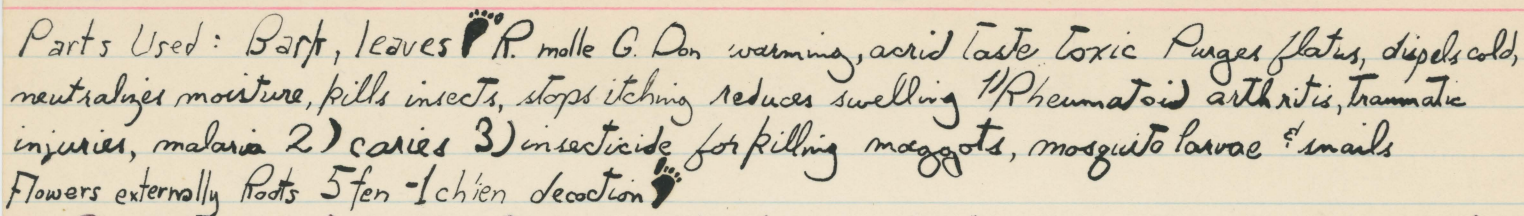 Parts Used: Bark, leaves R. molle G. Don warming, acrid taste toxic Purges flatus, dispels cold,
neutralizes moisture, kills insects, stops itching reduces swelling 1) Rheumatoid arthritis, traumatic
injuries, malaria 2) caries 3) insecticide for killing maggots, mosquito larvae & snails
Flowers externally Roots 5 fen - 1 ch'ien decoction